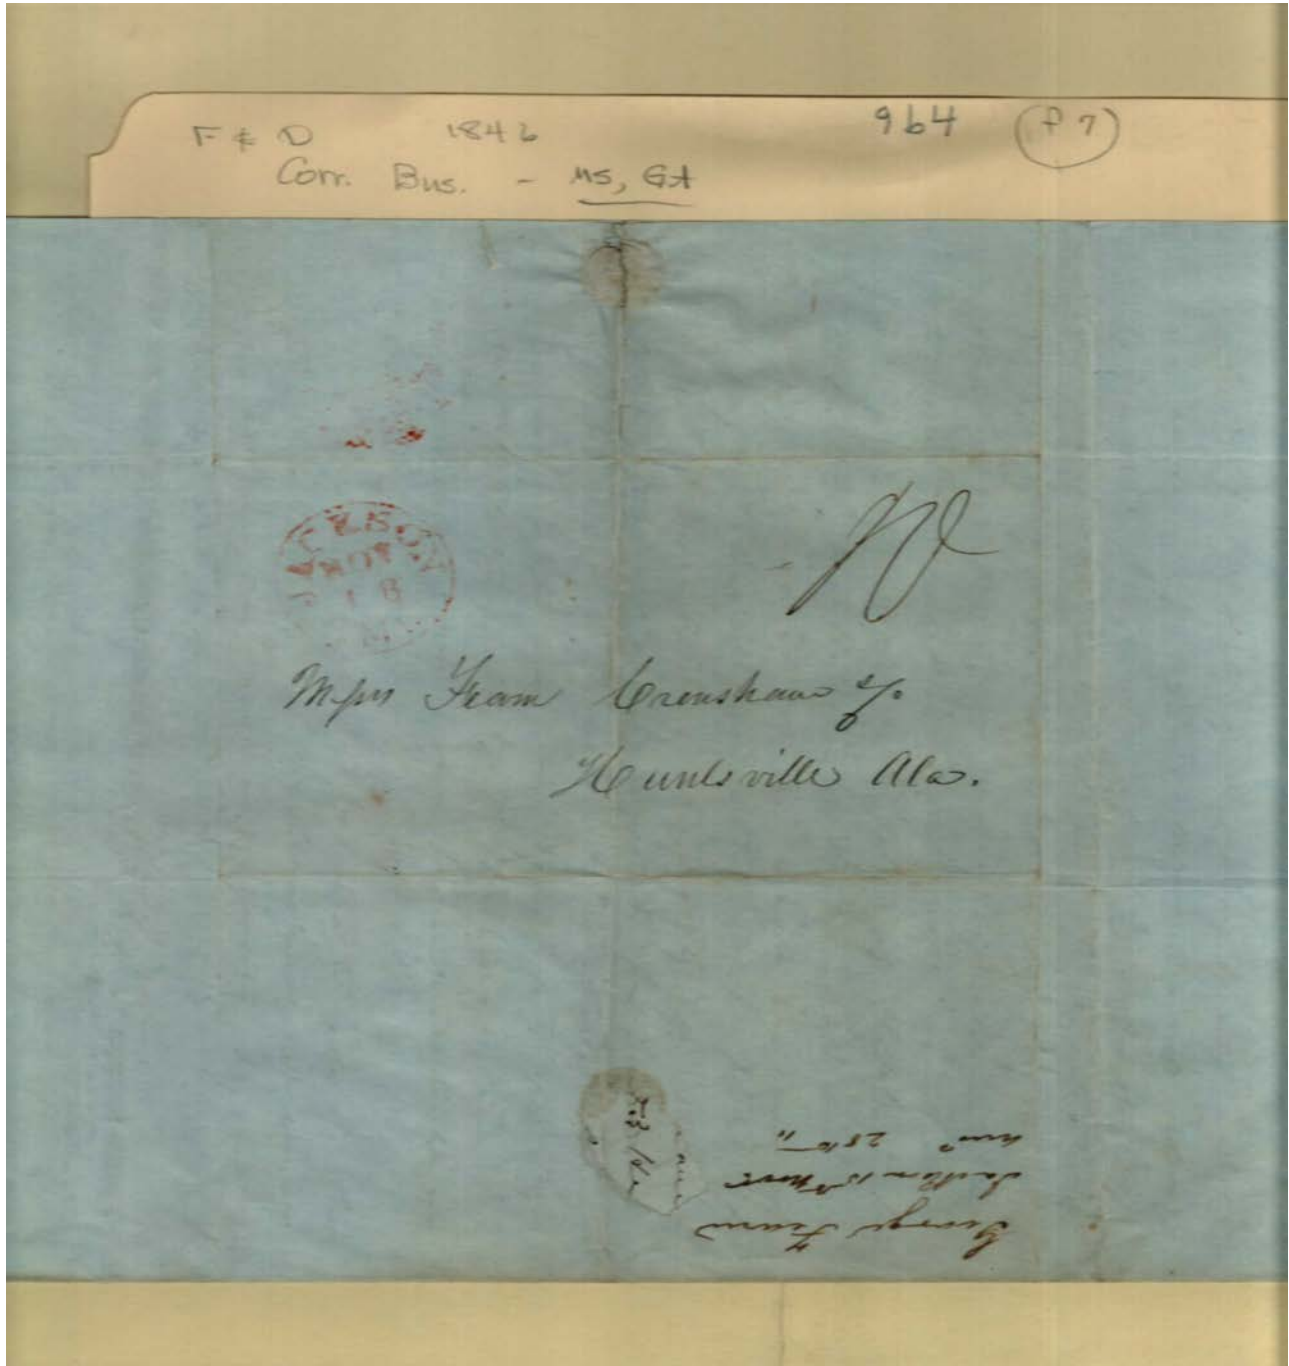 F & D 1846 964 (f 7)
Corr. Bus. - MS, GA
JACKSON
NOV
18
10
Messrs Fearn Crenshaw & Co
Huntsville Ala.
George Fearn
Jackson 15th Nov
28th "